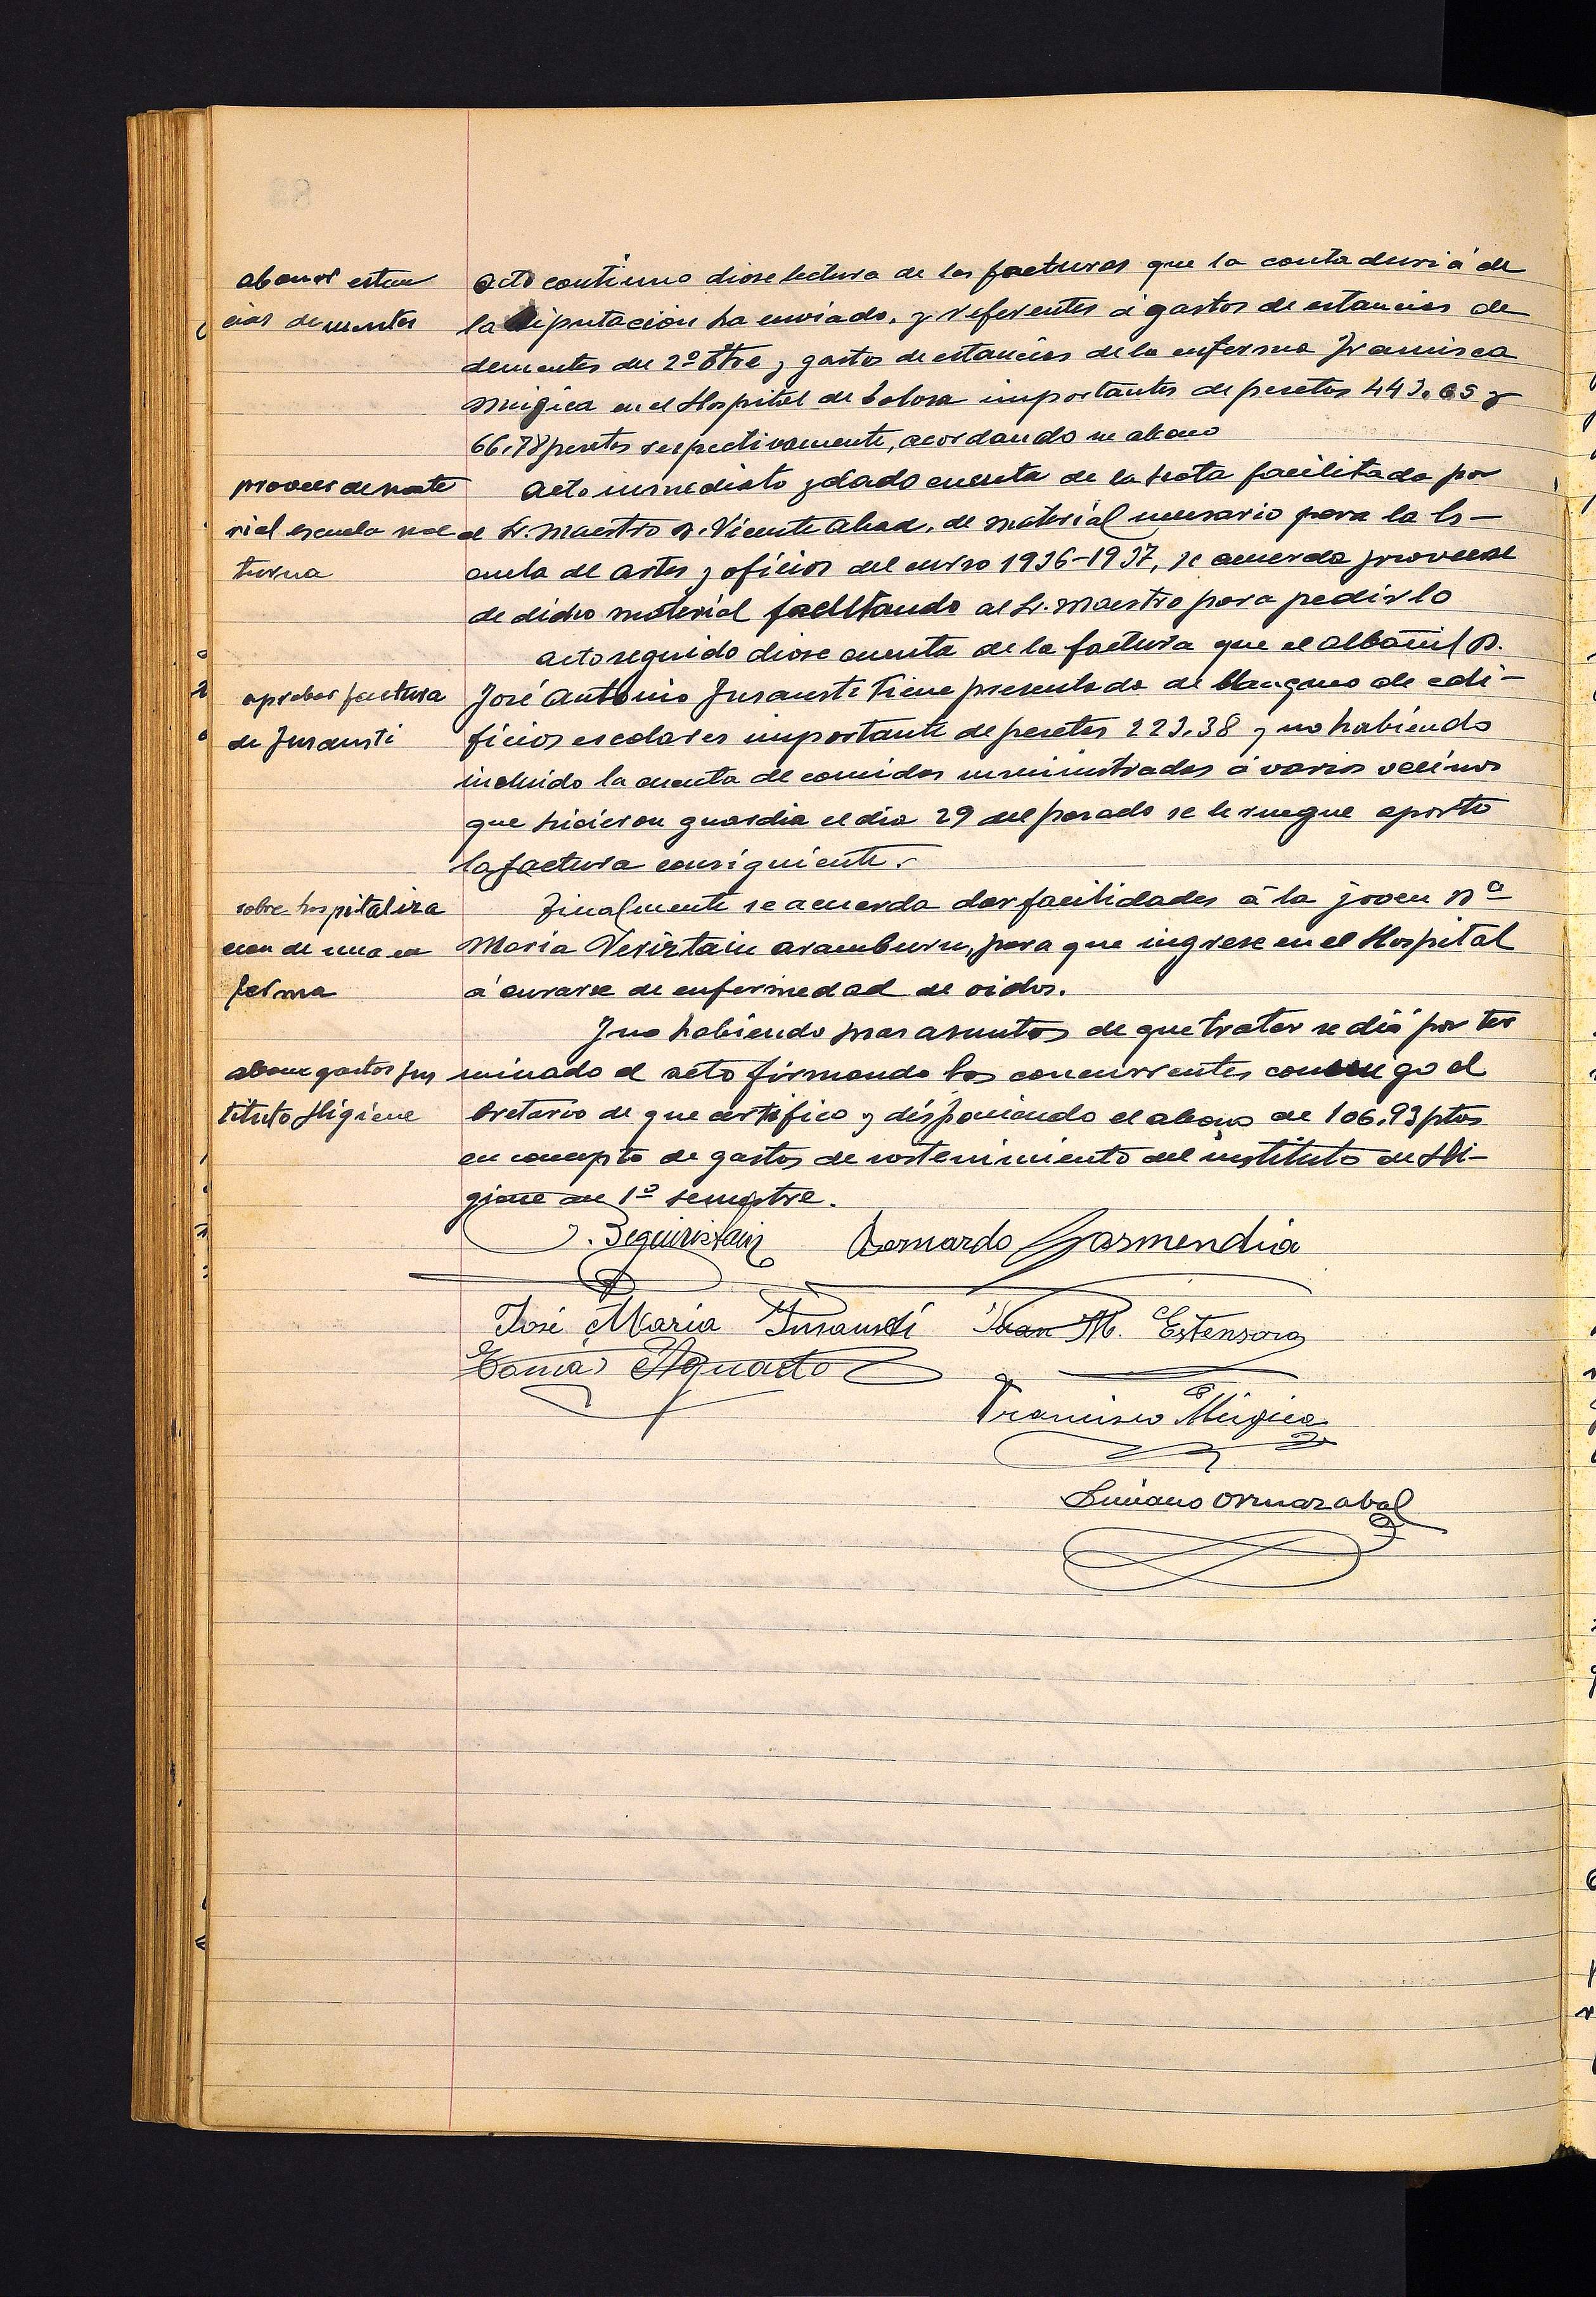 abonar estan
cias dementes
acto continuo diose lectura de las facturas que la contaduria de
la Diputacion ha enviado, y referentes á gastos de estancias de
dementes del 2º Stre y gastos de estancias de la enferma Francisca
Mugica en el Hospital de Tolosa importantes de pesetas 443.65 y
66.78 pesetas respectivamente, acordando su abono
proveer de mate
rial escuela noc
turna
Acto inmediato y dado cuenta de la nota facilitada por
el Sr. Maestro D. Vicente Abad, de material necesario para la Es-
cuela de artes y oficios del curso 1936-1937, se acuerda proveerse
de dicho material facultando al Sr. Maestro para pedirlo
acto seguido diose cuenta de la factura que el albañil D.
aprobar factura
de Insausti
José Antonio Insausti tiene presentado de blanqueo de edi-
ficios escolares importante de pesetas 223.38 y no habiendo
incluido la cuenta de comidas suministradas á varios vecinos
que hicieron guardia el dia 29 del pasado se le ruegue aporte
la factura consiguiente.
sobre hospitaliza
cion de una en
ferma
Finalmente se acuerda dar facilidades á la joven Dª
Maria Aramburu, para que ingrese en el Hospital
á curarse de enfermedad de oidos.
Y no habiendo mas asuntos de que tratar se dió por ter
abonar gastos Ins
tituto Higiene
minado el acto firmando los concurrentes conmigo el
Sretario de que certifico y disponiendo el abono de 106.93 ptas
en concepto de gastos de sostenimiento del instituto de Hi-
giene del 1º semestre.
J. Beguiristain Bernardo Garmendia
José Maria Insausti Juan M. Estensoro
Tomas Aguado
Francisco Mugica
Luciano Ormazabal